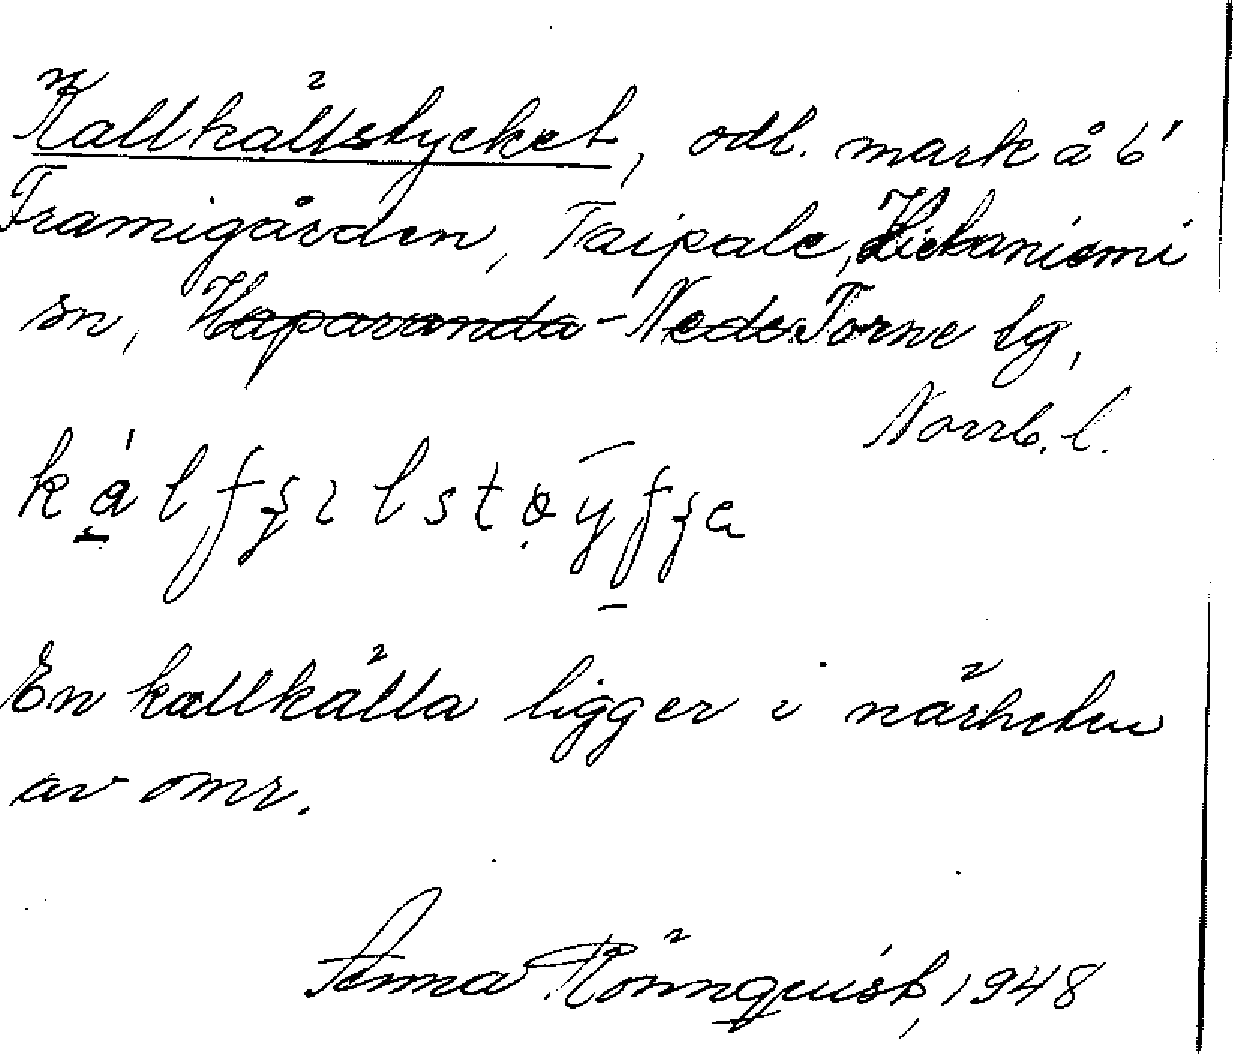 Kallkällstycket, odl. mark å 6¹
Framigården, Taipale, Hietaniemi
sn, Haparanda - Neder Torne tg,
Norrb. l.
En kallkälla ligger i närheten
av omr.
Anna Rönnquist, 1948